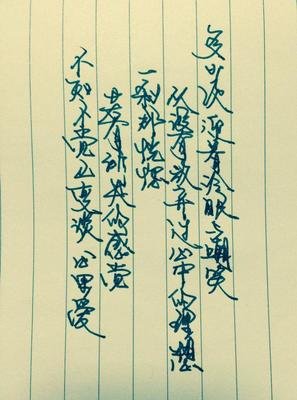 多少次 迎着冷眼与嘲笑
从没有放弃过心中的理想
一刹那恍惚
若有所失的感觉
不知不觉已变淡 心里爱